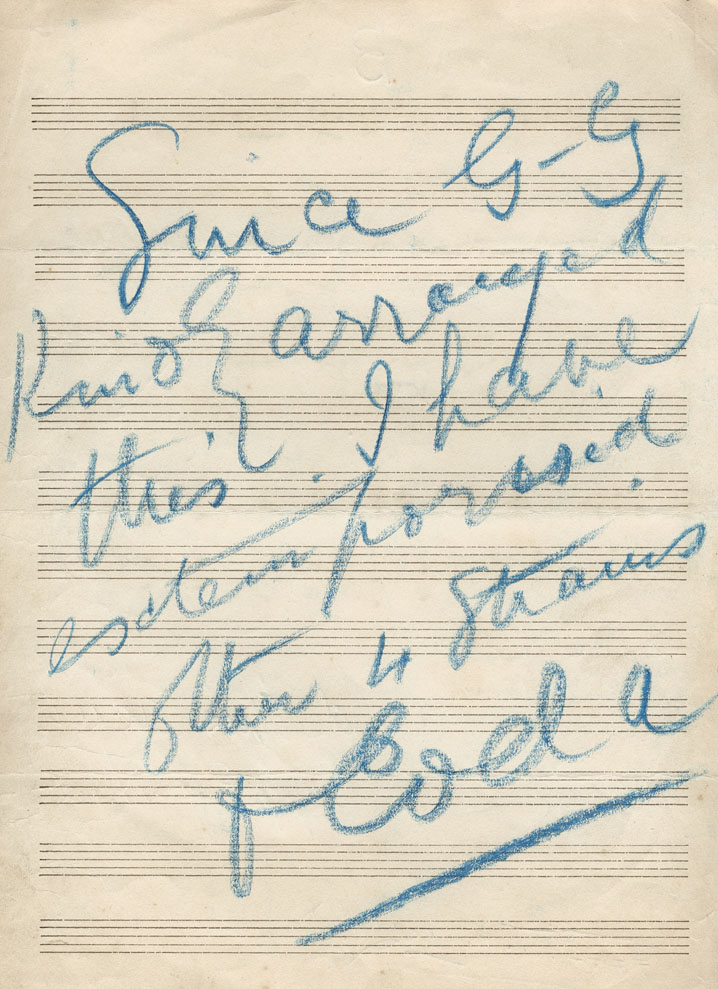 Since G-G
Kindly arranged
this I have
extemporised
other 4 strains
& Coda